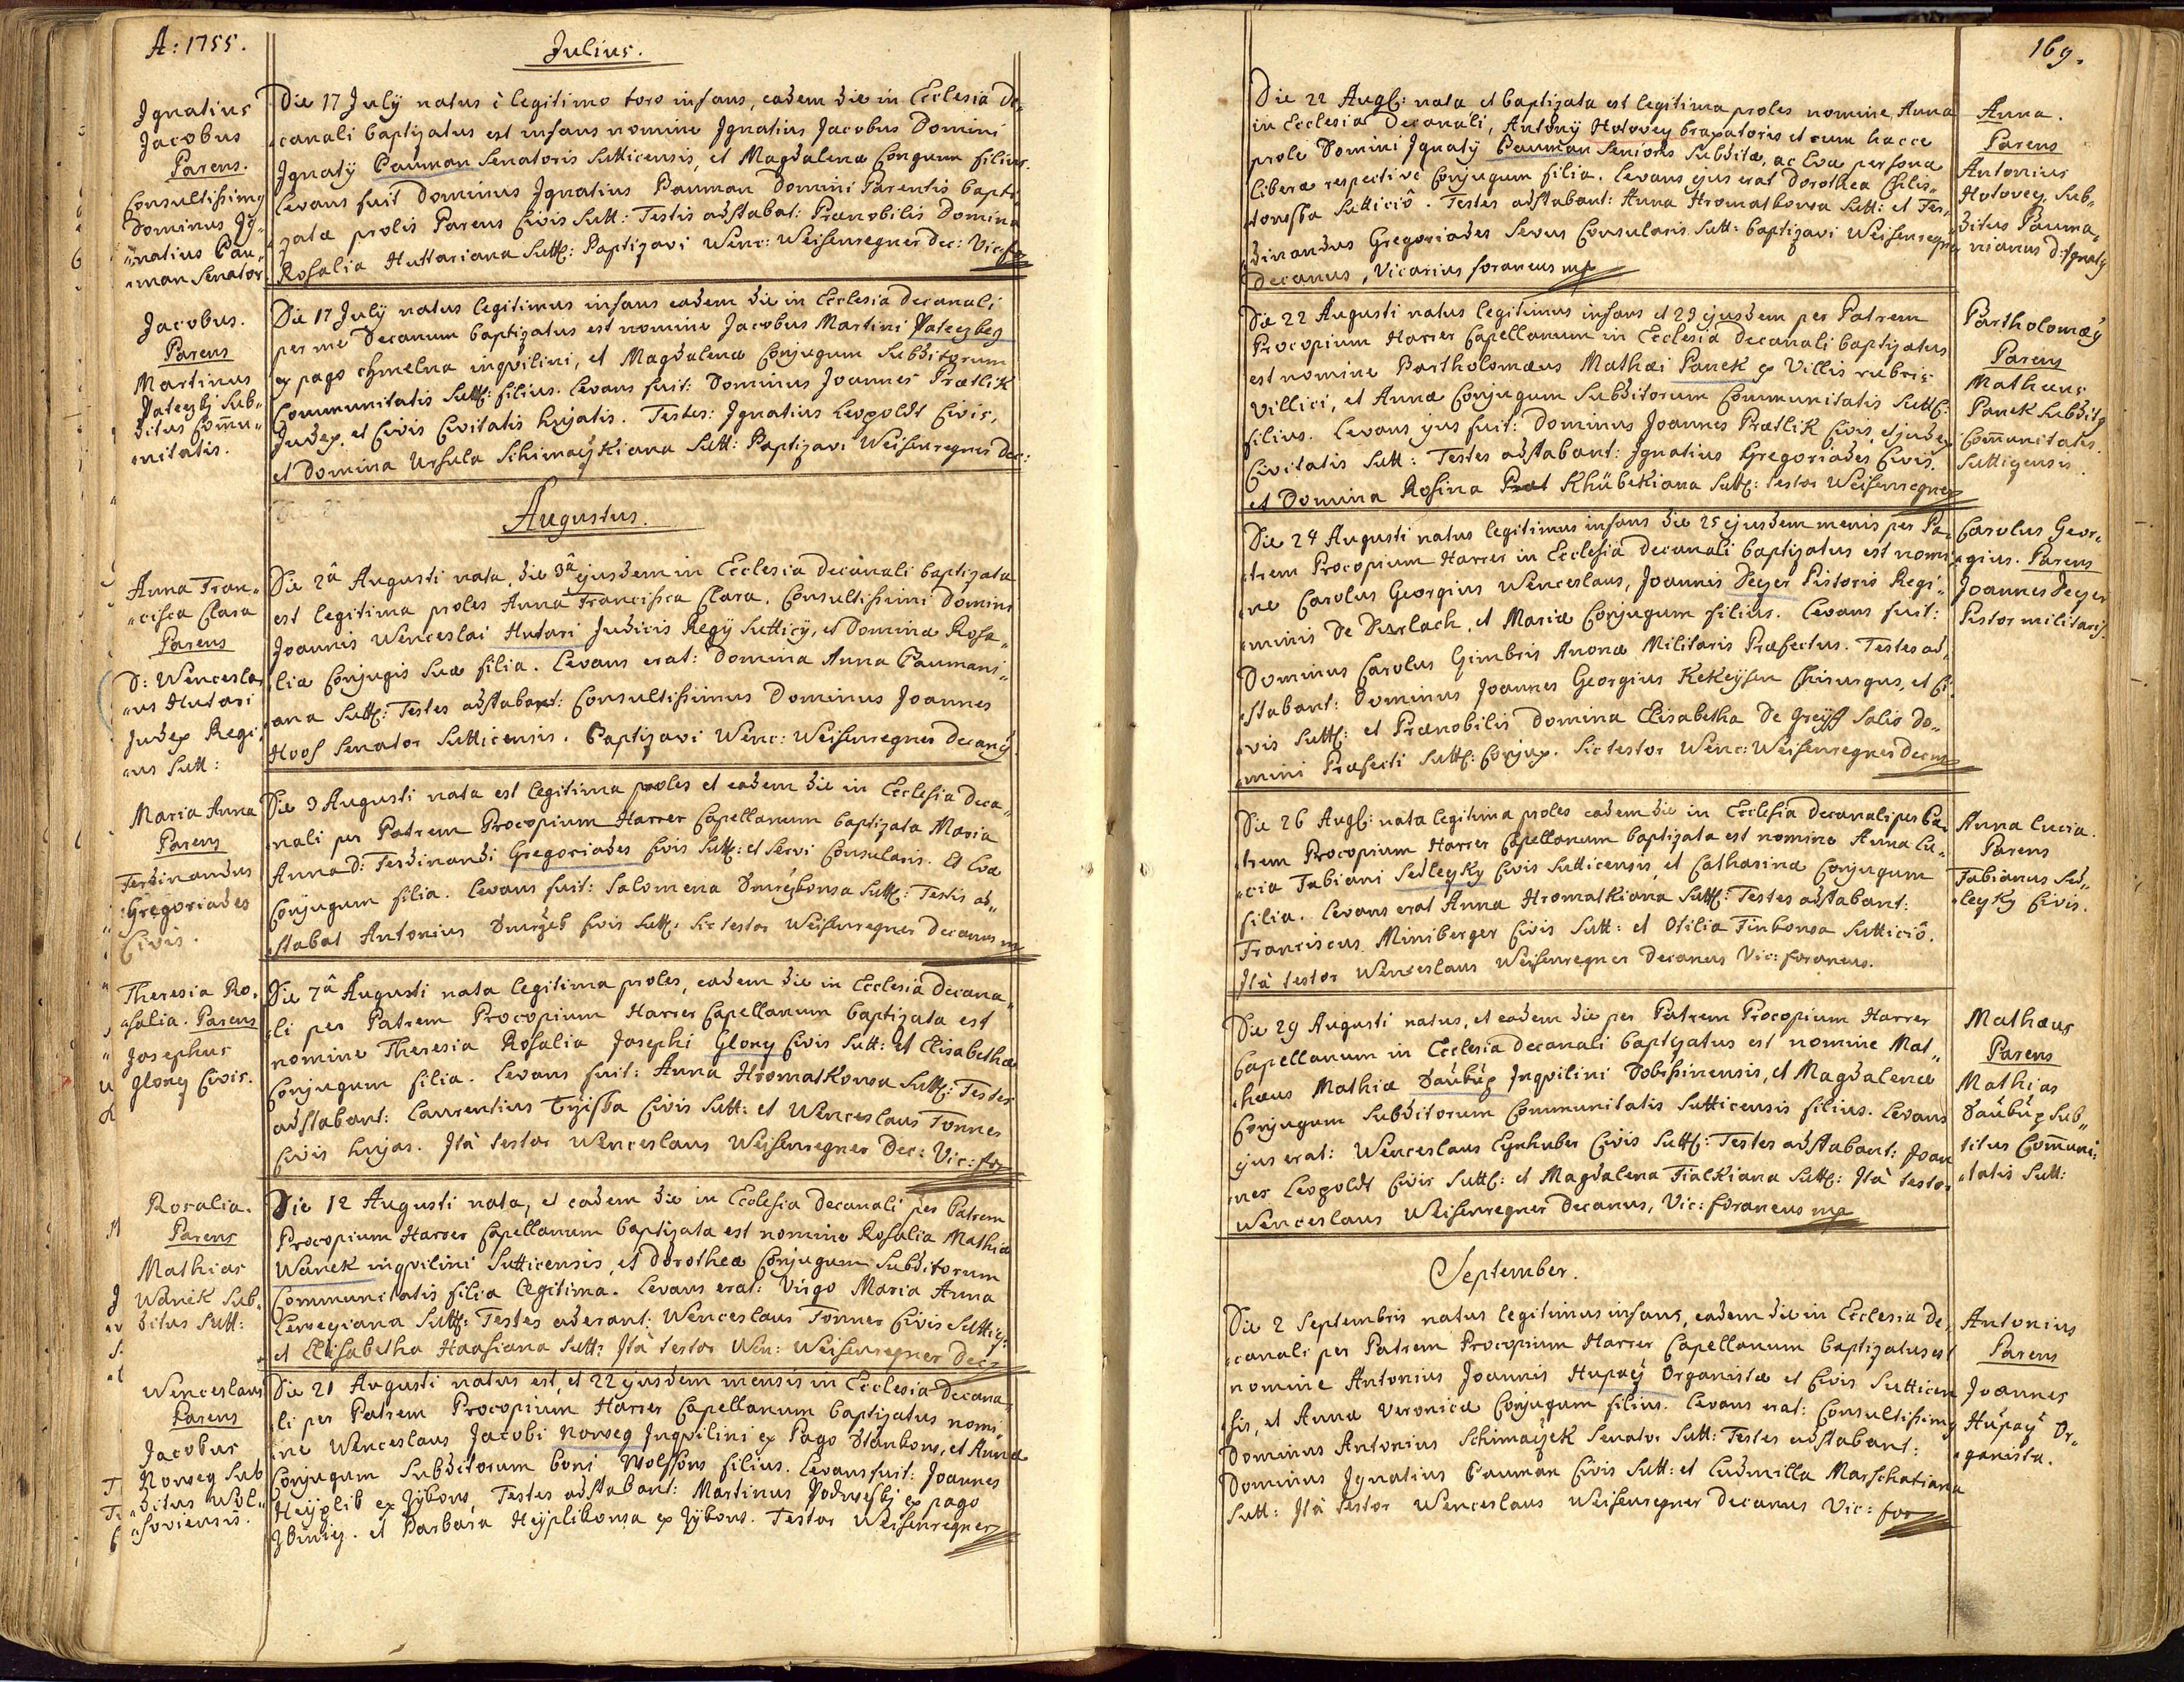 A: 1755.
Julius.
Ignatius
Jacobus
Parens.
Consultissimg
Dominus Ig„
„natius Pau„
„man Senator.
Die 17 July natus è legitimo toro infans, eadem die in Ecclesia De„
„canali baptizatus est infans nomine Ignatius Jacobus Domini
Ignatÿ Pauman Senatoris Sutticensis, et Magdalenæ Conjugum filius.
Levans fuit Dominus Ignatius Pauman Domini Parentis bapti„
„zatæ prolis Parens Civis Sutt: Testis adstabat: Prænobilis Domina
Rosalia Huttariana Sutt: Baptizavi Wenc: Weisenregner Dec: Vic: for
Jacobus.
Parens
Martinus
Pateczky Sub„
„ditus Com̄u„
„nitatis.
Die 17 July natus legitimus infans eadem die in Ecclesia Decanali
per me Decanum baptizatus est nomine Jacobus Martini
ex pago Chmelna inqvilini, et Magdalenæ Conjugum Subditorum
Communitatis Sutt: filius. Levans fuit: Dominus Joannes Prætlik
Judex, et Civis Civitatis hujatis. Testes: Ignatius Leopoldt Civis,
et Domina Ursula Schimaÿkiana Sutt: Baptizavi Weisenregner Dec:
Augustus.
Anna Fran„
„cisca Clara
Parens
D: Wencesla„
„us Hutari
Judex Regi„
„us Sutt:
Die 2â Augusti nata, die 3â ejusdem in Ecclesia Decanali baptizata
est legitima proles Anna Francisca Clara. Consultissimi Domini
Joannis Wenceslai Hutari Judicis Regÿ Sutticÿ, et Dominæ Rosa„
„liæ Conjugis suæ filia. Levans erat: Domina Anna Paumani„
„ana Sutt: Testes adstabant: Consultissimus Dominus Joannes
Hoos Senator Sutticensis. Baptizavi Wenc: Weisenregner Decang.
Maria Anna
Parens
Ferdinandus
Gregoriades
Civis.
Die 3 Augusti nata est legitima proles et eadem die in Ecclesia Deca„
„nali per Patrem Procopium Harrer Capellanum baptizata Maria
Anna D: Ferdinandi Gregoriades Civis Sutt: et Servi Consularis. Et Eva
Conjugum filia. Levans fuit: Salomena Sutt: Testis ad„
„stabat Antonius Civis Sutt: Sic testor Weisenregner Decanus mp
Theresia Ro„
„salia. Parens
Josephus
Glony Civis.
Die 7â Augusti nata legitima proles, eadem die in Ecclesia Decana„
„li per Patrem Procopium Harrer Capellanum baptizata est
nomine Theresia Rosalia Josephi Glony Civis Sutt: et Elisabethæ
Conjugum filia. Levans fuit: Anna Hromatkowa Sutt: Testes
adstabant: Laurentius Civis Sutt: et Wenceslaus Tonner
Civis hujas. Ità testor Wenceslaus Weisenregner Dec: Vic: for
Rosalia.
Parens
Mathias
Wanek Sub„
„ditus Sutt:
Die 12 Augusti nata, et eadem die in Ecclesia Decanali per Patrem
Procopium Harrer Capellanum baptizata est nomine Rosalia Mathiæ
Wanek inqvilini Sutticensis, et Dorotheæ Conjugum Subditorum
Communitatis filia legitima. Levans erat: Virgo Maria Anna
Sutt: Testes aderant: Wenceslaus Tonner Civis
et Elisabetha Haasiana Sutt: Ità testor Wen: Weisenregner Dec:
Wenceslaus
Parens
Jacobus
Noweg Sub
„ditus Wol„
„soviensis.
Die 21 Augusti natus est, et 22 ejusdem mensis in Ecclesia Decana„
„li per Patrem Procopium Harrer Capellanum baptizatus nomi„
„ne Wenceslaus Jacobi Noweg Inqvilini ex Pago et Annæ
Conjugum Subditorum boni filius. Levans fuit: Joannes
ex Testes adstabant: Martinus ex pago
et Barbara ex Testor Weisenregner
169.
Die 22 Aug: nata et baptizata est legitima proles nomine Anna
in Ecclesia Decanali, Antonÿ Hotovey braxatoris et cum hacce
prole Domini Ignatÿ Pauman Senioris Subditæ, ac Eva persona
liberæ respectivè Conjugum filia. Levans ejus erat Dorothea
Sutticiô. Testes adstabant: Anna Hromatkowa Sutt: et Fer„
„dinandus Gregoriades Servus Consularis Sutt: baptizavi Weisenregner
Decanus, Vicarius foraneus mp
Anna.
Parens
Antonius
Hotovey Sub„
„ditus Pauma„
„nianus D: Ignatÿ
Die 22 Augusti natus legitimus infans et 23 ejusdem per Patrem
Procopium Harrer Capellanum in Ecclesia Decanali baptizatus
est nomine Bartholomæus Mathæi Panek ex Villis rubris
Villici, et Annæ Conjugum Subditorum Communitatis Sutt:
filius. Levans ejus fuit: Dominus Joannes Prætlik Civis, et Judex
Civitatis Sutt: Testes adstabant: Ignatius Gregoriades Civis.
et Domina Rosina Khübekiana Sutt: testor Weisenregner
Partholomæÿ
Parens
Matheus
Panek Subditg
Com̄unitatis
Suttizensis.
Die 24 Augusti natus legitimus infans die 25 ejusdem mensis per Pa„
„trem Procopium Harrer in Ecclesia Decanali baptizatus est nomi„
„ne Carolus Georgius Wenceslaus, Joannis Deyer Pistoris Regi„
„minis De Durlach, et Mariæ Conjugum filius. Levans fuit:
Dominus Carolus Gimbris Anonæ Militaris Præfectus. Testes ad„
„stabant: Dominus Joannes Georgius Kekeysen Chirurgus, et Ci„
„vis Sutt: et Prænobilis Domina Elisabetha De Greÿff Salis Do„
„mini Præfecti Sutt: Conjux. Sic testor Wenc: Weisenregner Decanus
Carolus Geor„
„gius. Parens
Joannes Deyer
Pistor militaris.
Die 26 Aug: nata legitima proles eadem die in Ecclesia Decanali per Pa„
„trem Procopium Harrer Capellanum baptizata est nomine Anna Lu„
„cia Fabiani Sedleyky Civis Sutticensis, et Catharinæ Conjugum
filia. Levans erat Anna Hromatkiana Sutt: Testes adstabant:
Franciscus Miniberger Civis Sutt: et Otilia Finkowa Sutticiô.
Ità testor Wenceslaus Weisenregner Decanus Vic: foraneus.
Anna Lucia.
Parens
Fabianus Sed„
„leyky Civis.
Die 29 Augusti natus, et eadem die per Patrem Procopium Harrer
Capellanum in Ecclesia Decanali baptizatus est nomine Mat„
„hæus Mathiæ Inqvilini et Magdalenæ
Conjugum Subditorum Communitatis Sutticensis filius. Levans
ejus erat: Wenceslaus Eynhuber Civis Sutt: Testes adstabant: Joan
„nes Leopoldt Civis Sutt: et Magdalena Fialkiana Sutt: Ità testor
Wenceslaus Weisenregner Decanus, Vic: foraneus mp
Mathæus
Parens
Mathias
Sub„
„ditus Com̄uni„
„tatis Sutt:
September.
Die 2 Septembris natus legitimus infans, eadem die in Ecclesia De„
„canali per Patrem Procopium Harrer Capellanum baptizatus est
nomine Antonius Joannis Hupaÿ Organistæ et Civis Sutticen
sis, et Annæ Veronicæ Conjugum filius. Levans erat: Consultissimg
Dominus Antonius Schimaÿek Senator Sutt: Testes adstabant:
Dominus Ignatius Pauman Civis Sutt: et Ludmilla Marschatiana
Sutt: Ità testor Wenceslaus Weisenregner Decanus Vic: for
Antonius
Parens
Joannes
Hupaÿ Or„
„ganista.